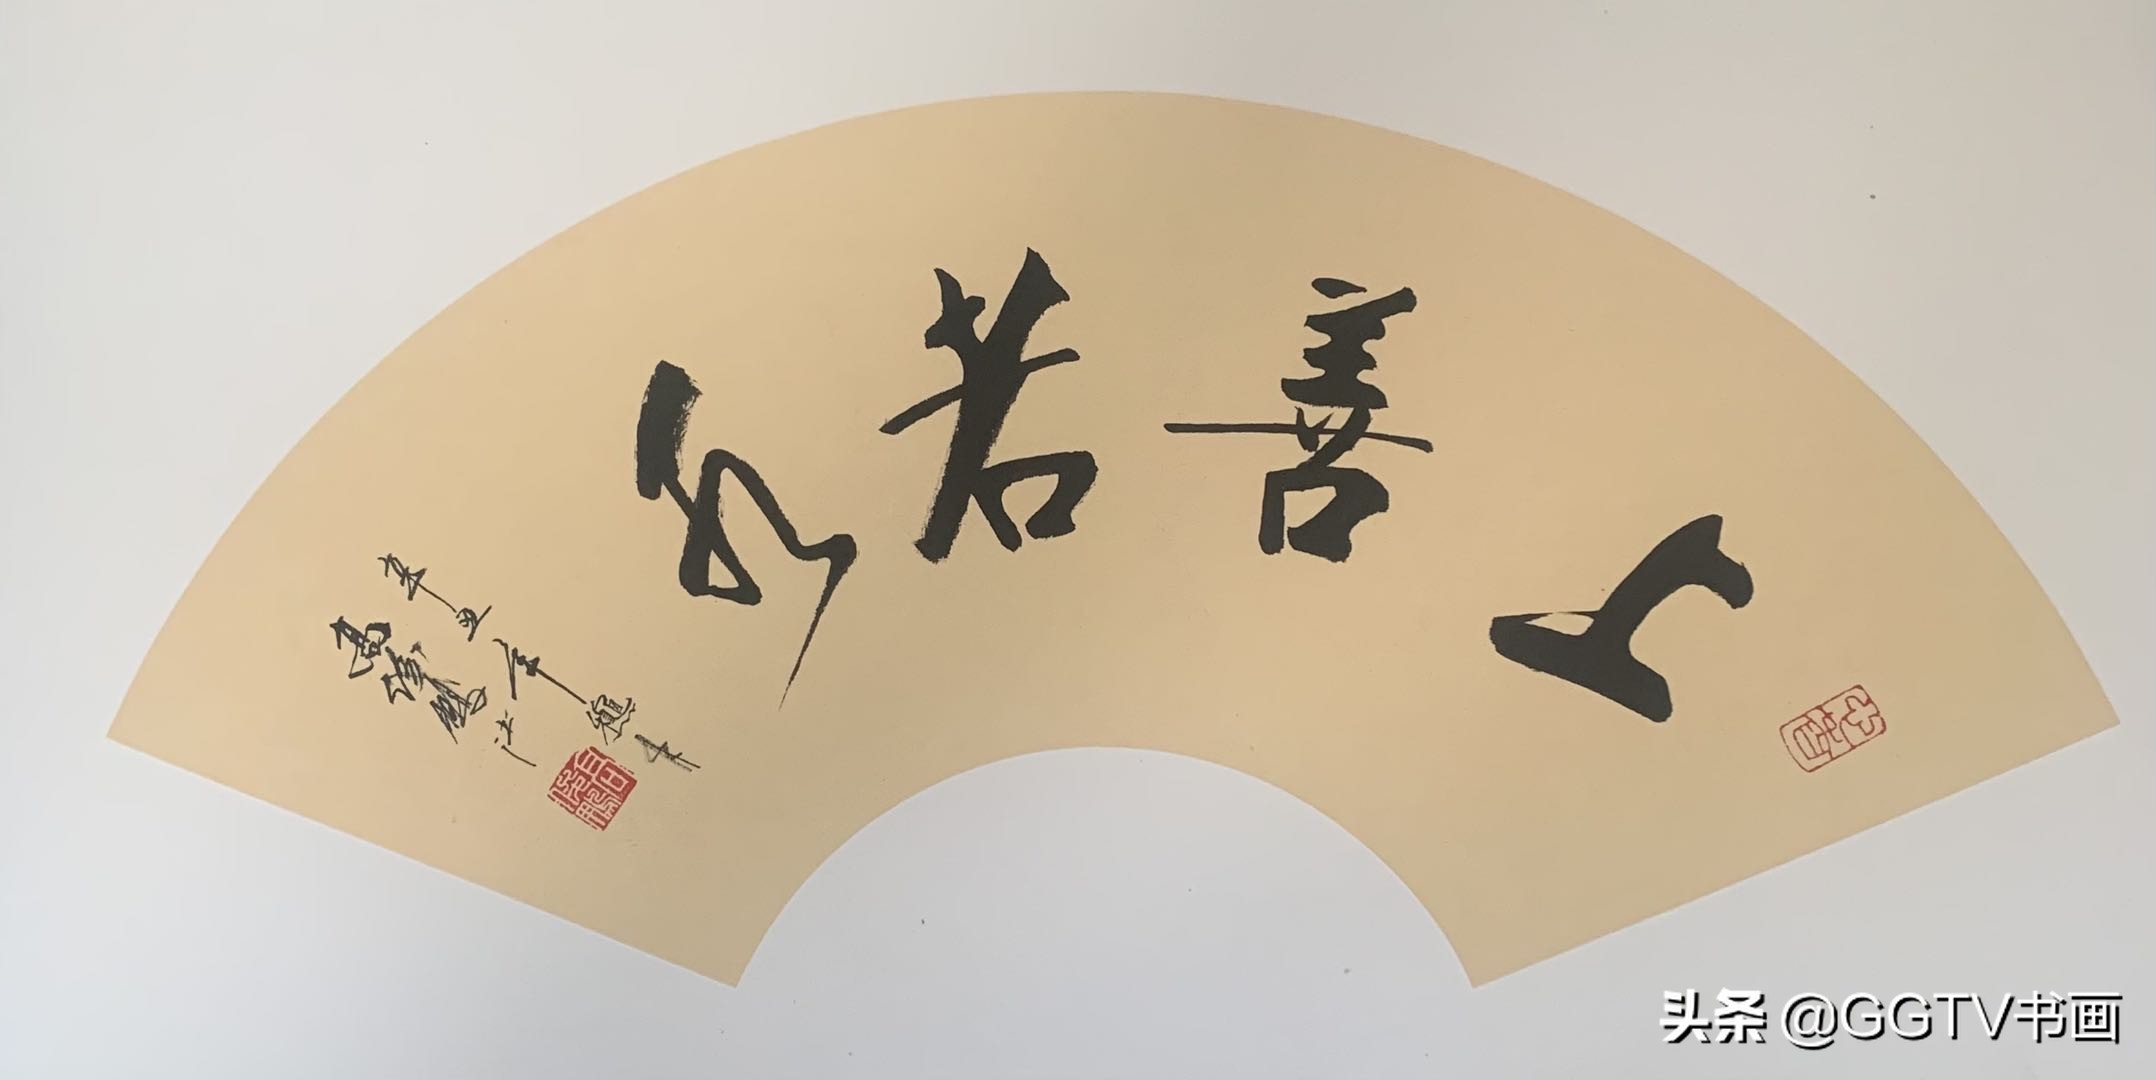 上善若水
辛丑年
头条 @GGTV书画